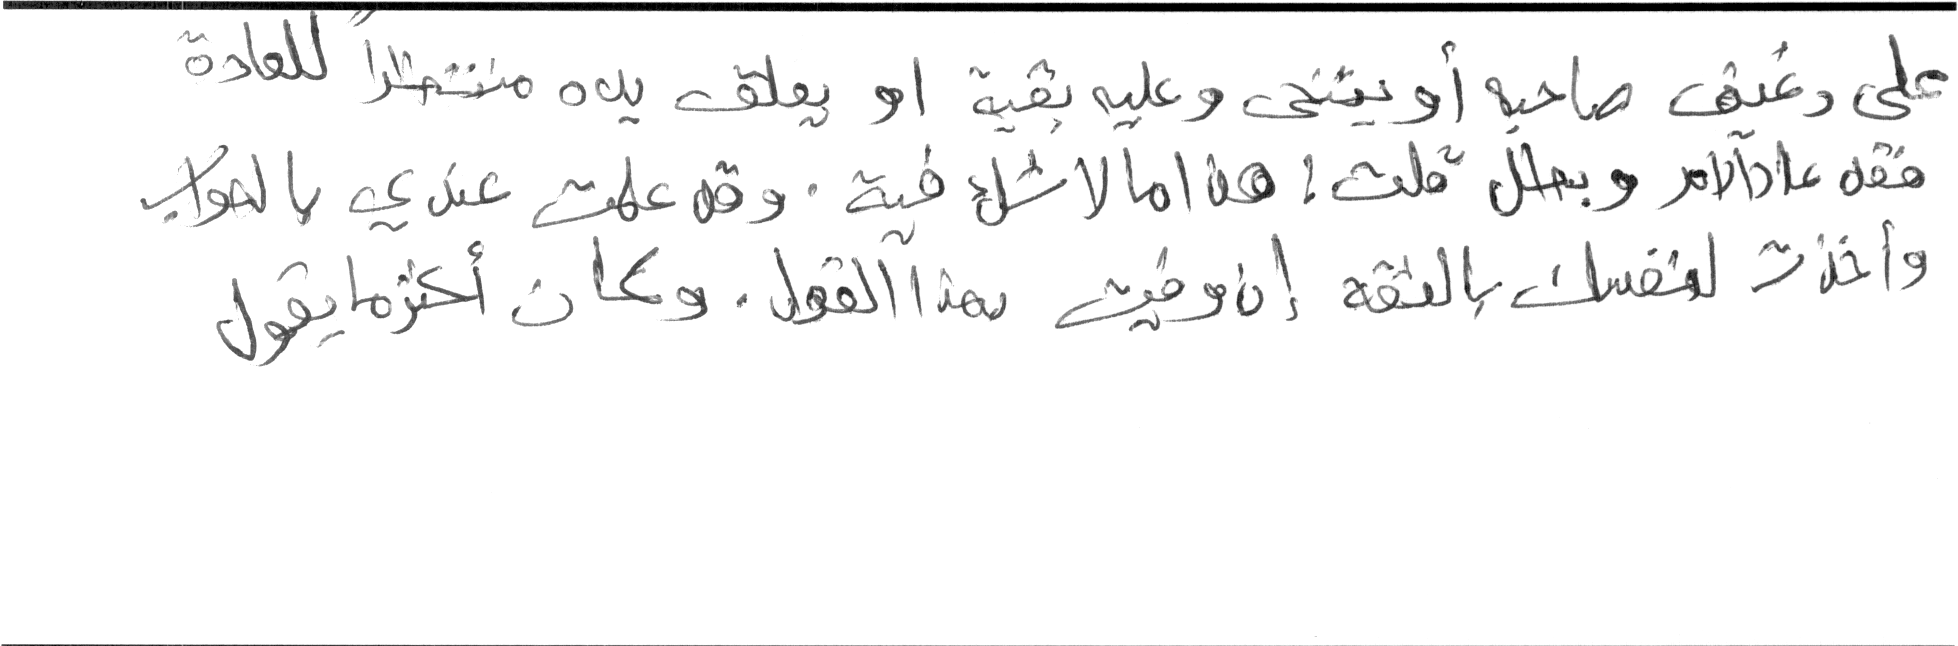 على رغيف صاحبه أو يتنحى وعليه بقية او يعلق يده منتظراً للعادة
فقد عاد الامر وبطل قلت : هذا ما لا شك فية . وقد علمت عندي بالصواب
وأخذت لنفسك بالثقه إن وفيت بهذا القول . وكان أكثر ما يقول